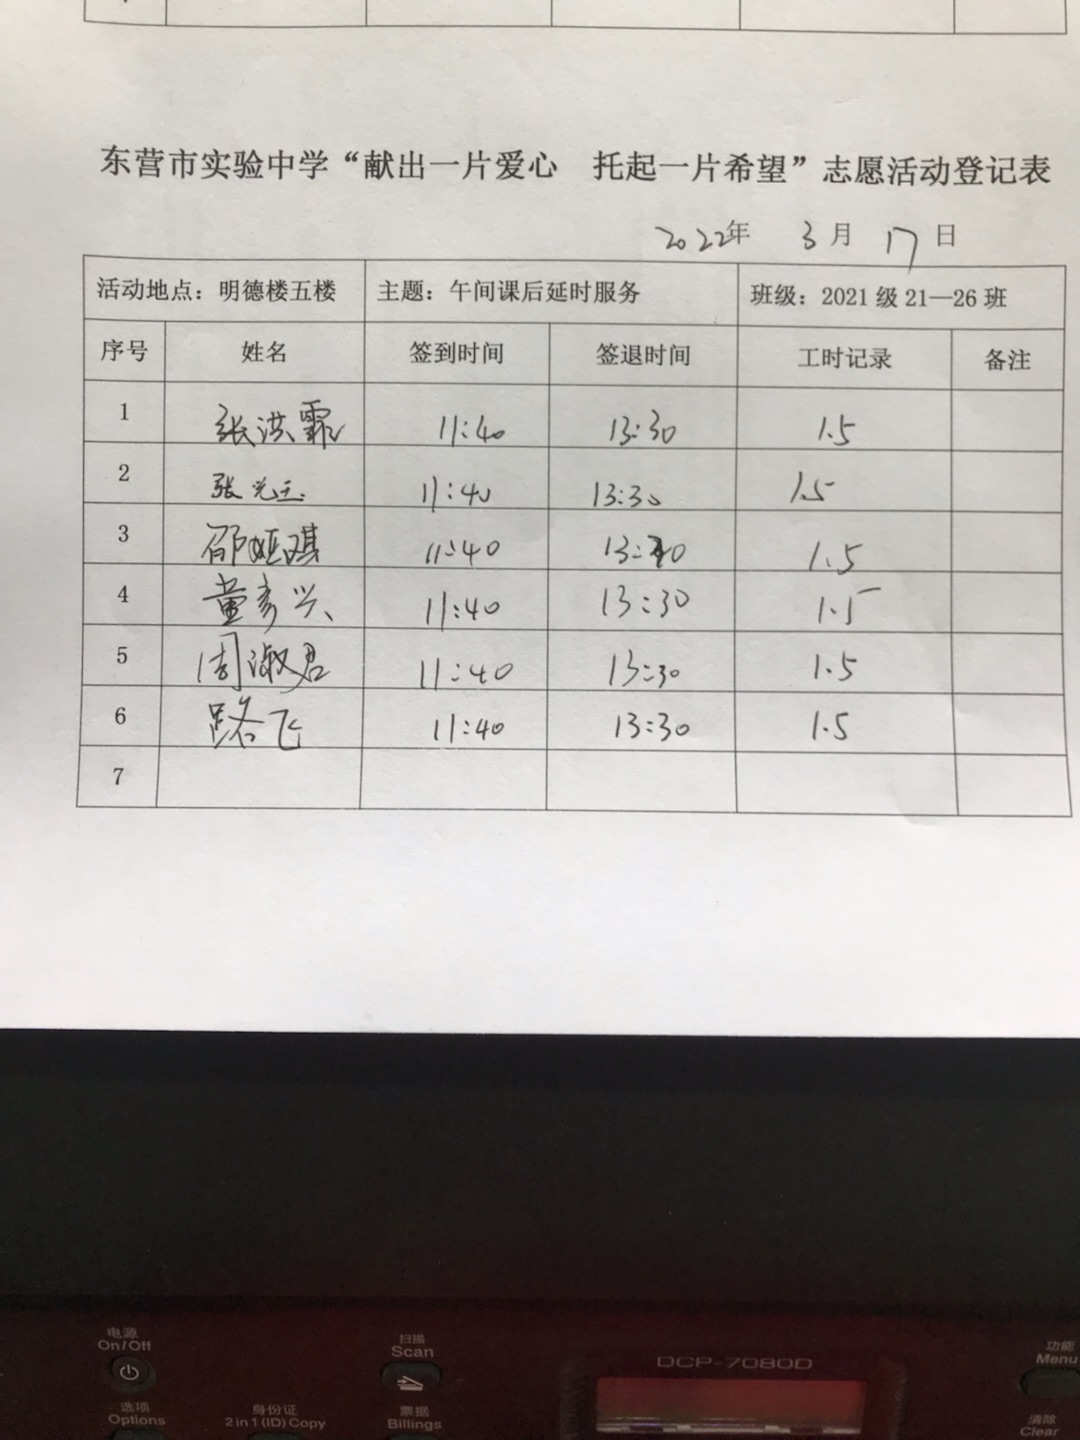 东营市实验中学“献出一片爱心 托起一片希望”志愿活动登记表
2022年 3月 17日
活动地点：明德楼五楼 主题：午间课后延时服务 班级：2021级21—26班
序号 姓名 签到时间 签退时间 工时记录 备注
1 张洪霏 11:40 13:30 1.5
2 张光玉 11:40 13:30 1.5
3 邵娅琪 11:40 13:30 1.5
4 董彦兴 11:40 13:30 1.5
5 周淑君 11:40 13:30 1.5
6 路飞 11:40 13:30 1.5
7
电源 扫描 功能
On/Off Scan DCP-7080D Menu
选项 身份证 票据 清除
Options 2 in 1 (ID) Copy Billings Clear